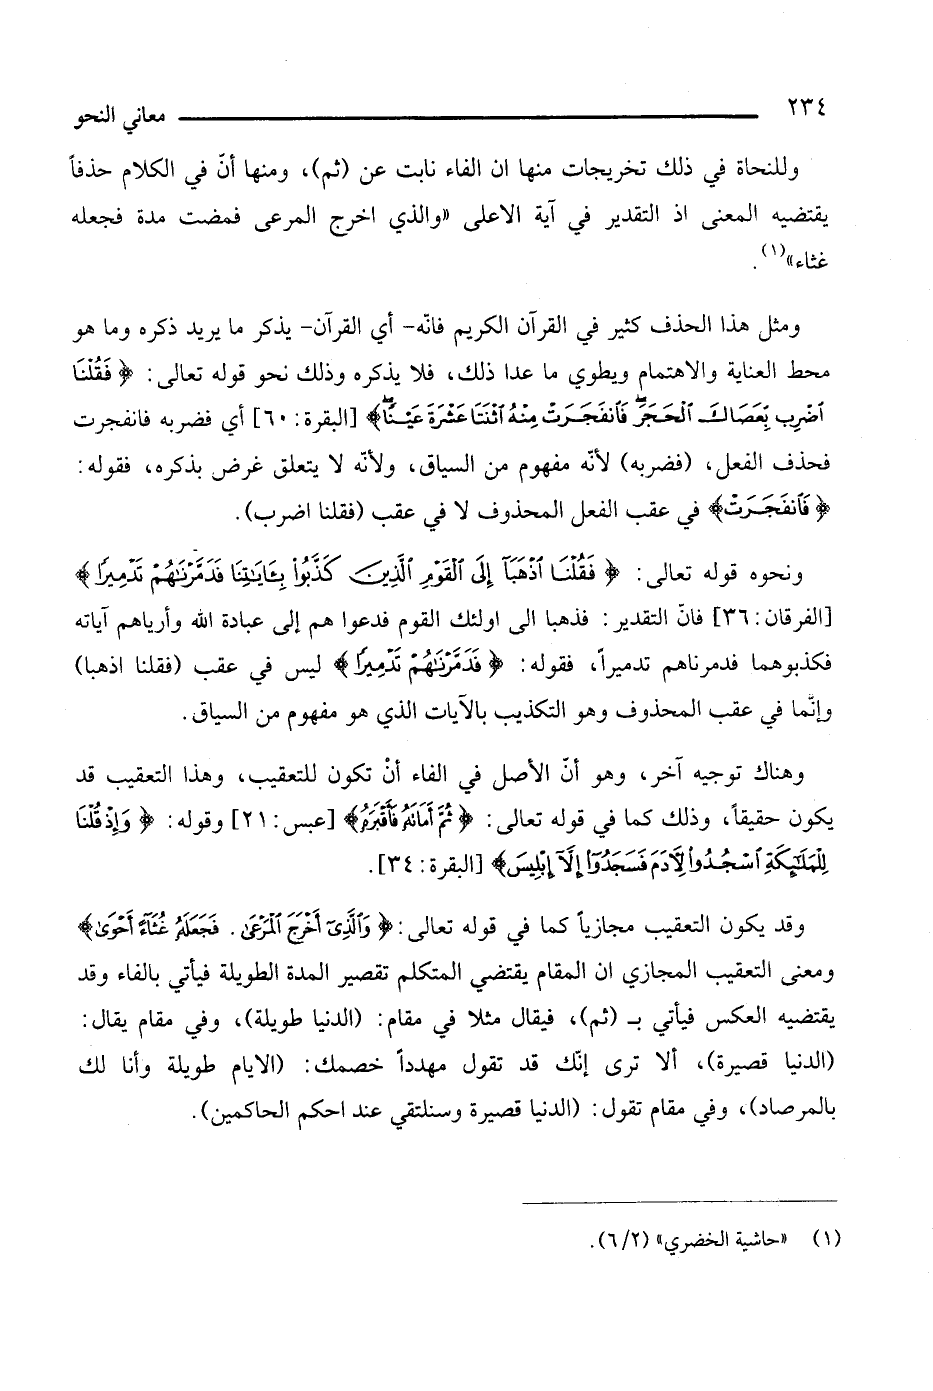 ٢٣٤ معاني النحو
وللنحاة في ذلك تخريجات منها ان الفاء نابت عن (ثم)، ومنها أنّ في الكلام حذفاً
يقتضيه المعنى اذ التقدير في آية الاعلى «والذي اخرج المرعى فمضت مدة فجعله
غثاء»(١).
ومثل هذا الحذف كثير في القرآن الكريم فانّه- أي القرآن- يذكر ما يريد ذكره وما هو
محط العناية والاهتمام ويطوي ما عدا ذلك، فلا يذكره وذلك نحو قوله تعالى: ﴿ فَقُلْنَا
ٱضْرِب بِّعَصَاكَ ٱلْحَجَرَۖ فَٱنفَجَرَتْ مِنْهُ ٱثْنَتَا عَشْرَةَ عَيْنًاۖ﴾ [البقرة: ٦٠] أي فضربه فانفجرت
فحذف الفعل، (فضربه) لأنّه مفهوم من السياق، ولأنّه لا يتعلق غرض بذكره، فقوله:
﴿ فَٱنفَجَرَتْ﴾ في عقب الفعل المحذوف لا في عقب (فقلنا اضرب).
ونحوه قوله تعالى: ﴿ فَقُلْنَا ٱذْهَبَآ إِلَى ٱلْقَوْمِ ٱلَّذِينَ كَذَّبُوا۟ بِـَٔايَـٰتِنَا فَدَمَّرْنَـٰهُمْ تَدْمِيرًا ﴾
[الفرقان: ٣٦] فانّ التقدير: فذهبا الى اولئك القوم فدعوا هم إلى عبادة الله وأرياهم آياته
فكذبوهما فدمرناهم تدميراً، فقوله: ﴿ فَدَمَّرْنَـٰهُمْ تَدْمِيرًا ﴾ ليس في عقب (فقلنا اذهبا)
وإنَّما في عقب المحذوف وهو التكذيب بالآيات الذي هو مفهوم من السياق.
وهناك توجيه آخر، وهو أنّ الأصل في الفاء أنْ تكون للتعقيب، وهذا التعقيب قد
يكون حقيقاً، وذلك كما في قوله تعالى: ﴿ ثُمَّ أَمَاتَهُۥ فَأَقْبَرَهُۥ﴾ [عبس: ٢١] وقوله: ﴿ وَإِذْ قُلْنَا
لِلْمَلَـٰٓئِكَةِ ٱسْجُدُوا۟ لِـَٔادَمَ فَسَجَدُوٓا۟ إِلَّآ إِبْلِيسَ﴾ [البقرة: ٣٤].
وقد يكون التعقيب مجازياً كما في قوله تعالى: ﴿ وَٱلَّذِىٓ أَخْرَجَ ٱلْمَرْعَىٰ . فَجَعَلَهُۥ غُثَآءً أَحْوَىٰ﴾
ومعنى التعقيب المجازي ان المقام يقتضي المتكلم تقصير المدة الطويلة فيأتي بالفاء وقد
يقتضيه العكس فيأتي بـ (ثم)، فيقال مثلا في مقام: (الدنيا طويلة)، وفي مقام يقال:
(الدنيا قصيرة)، ألا ترى إنّك قد تقول مهدداً خصمك: (الايام طويلة وأنا لك
بالمرصاد)، وفي مقام تقول: (الدنيا قصيرة وسنلتقي عند احكم الحاكمين).
(١) «حاشية الخضري» (٦/٢).